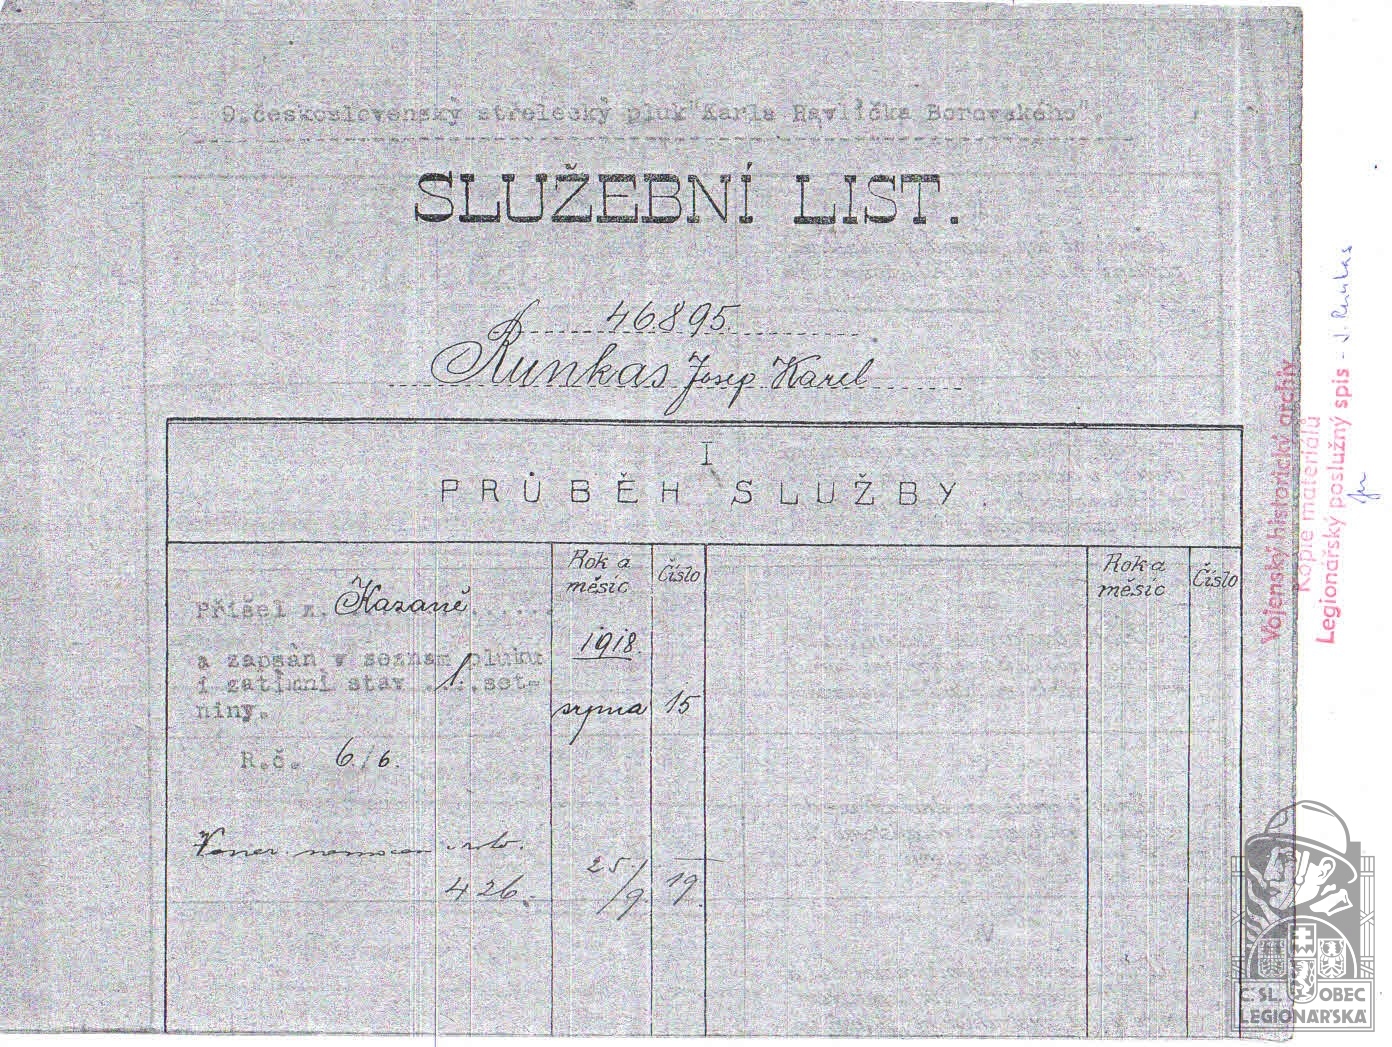 9.československý střelecký pluk "Karla Havlíčka Borovského".
SLUŽEBNÍ LIST.
46895.
Runkas Josef Karel
I
PRŮBĚH SLUŽBY.
Rok a měsíc
Číslo
Rok a měsíc
Číslo
Přišel z. Kazaně......
a zapsán v seznam pluku
i zatímní stav .1...set-
niny.
1918.
srpna 15
R.č. 6/6.
426.
25/9. 19.
Vojenský historický archiv
Kopie materiálů
Legionářský poslužný spis - J. Runkas
Č. SL. OBEC
LEGIONÁŘSKÁ